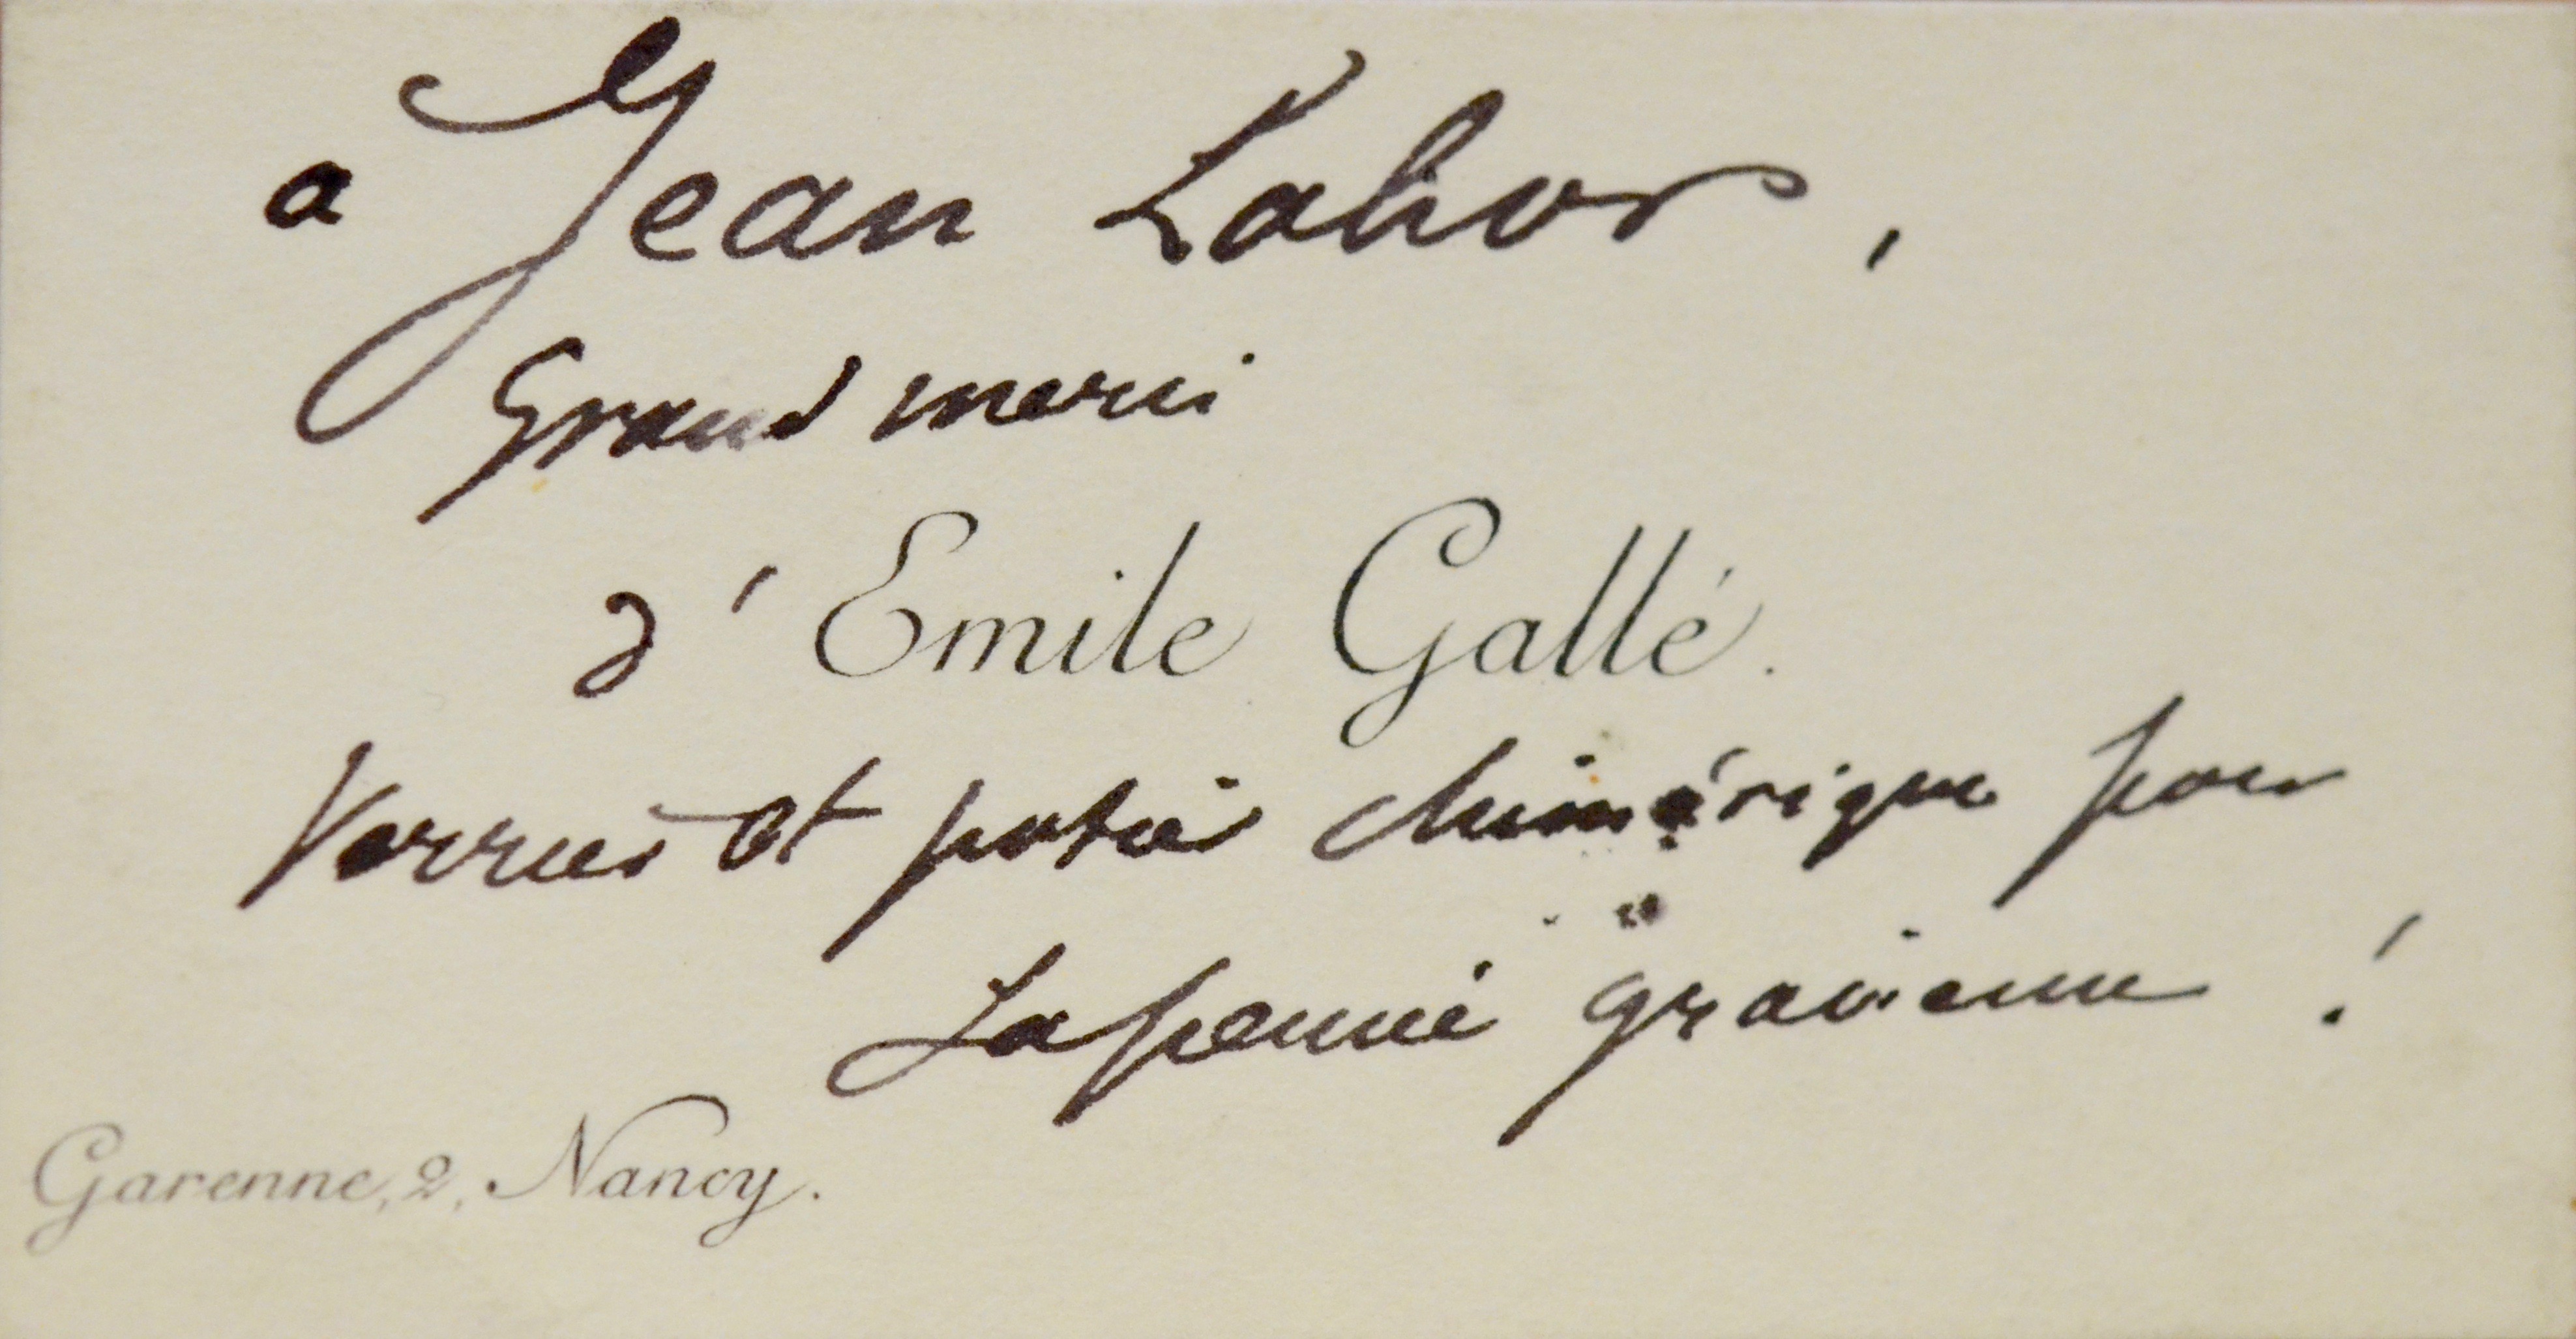 a Jean Lahor,
Grand merci
d' Emile Gallé.
Verrier et potier chimérique pour
La pensée gracieuse !
Garenne, 2, Nancy.